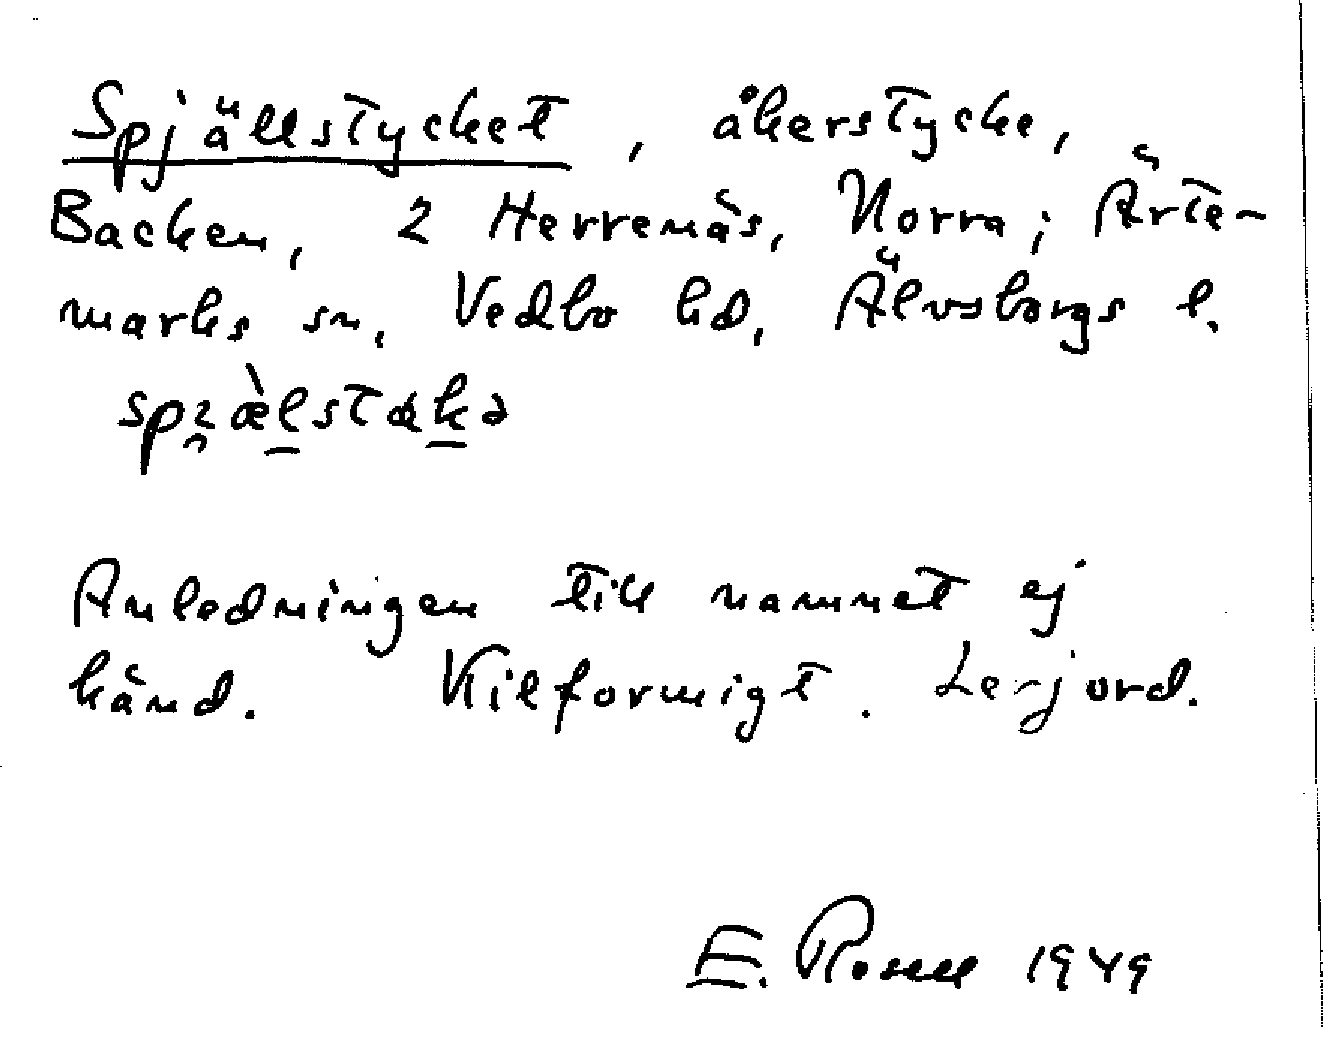 Spjällstycket, åkerstycke,
Backen, 2 Herrenäs, Norra; Ärte-
marks sn, Vedbo hd, Älvsborgs l.
Anledningen till namnet ej
känd. Kilformigt. Lerjord.
E. Rosell 1949